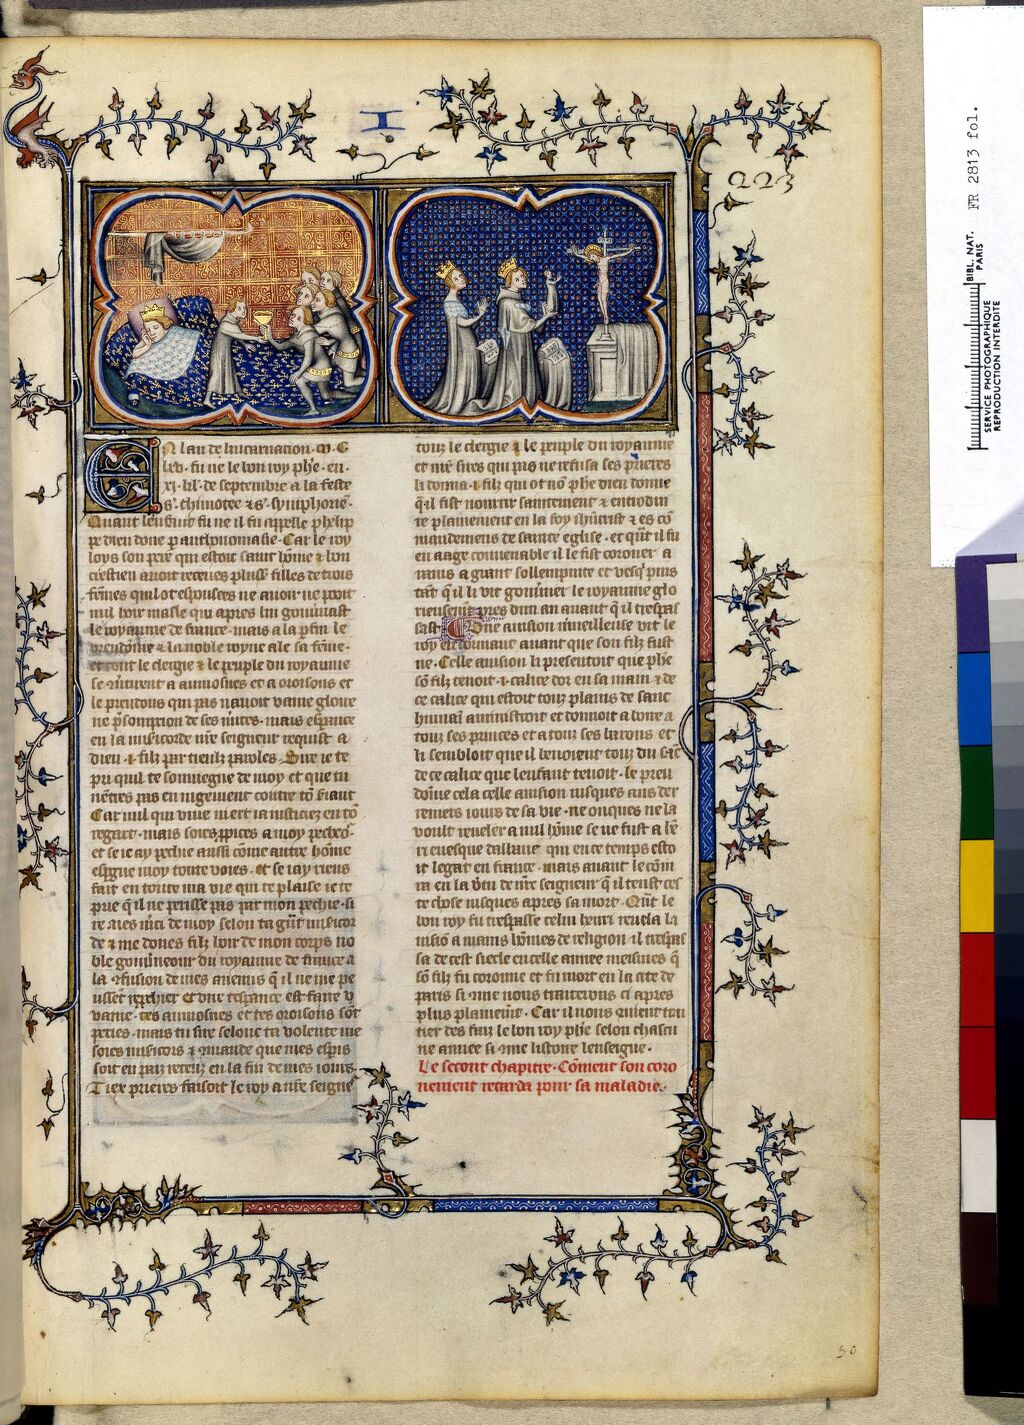 I
223
En lan de lincarnacion. M. C
lxv. fu ne le bon roy phe. en
xi. kl. de septembre a la feste
s. thimotee & s. symphorie.
Quant lenfant fu ne il fu appelle phelip
pe dieu done p anthonomasie. Car le roy
loys son pere qui estoit saint home & bon
crestien auoit receues pluss filles de trois
femes quil ot espousees ne auoir ne pot
nul hoir masle qui apres lui gouuernast
le royaume de france. mais a la pfin le
preudome & la noble royne ale sa feme.
et tout le clergie & le peuple du royaume
se mirent a aumosnes et a oroisons et
le preudons qui pas nauoit vaine gloire
ne psompcion de ses merites. mais esperance
en la misericorde nre seigneur requist a
dieu .i. filz par tieulx paroles. Sire ie te
pri quil te souuiegne de moy et que tu
nentres pas en iugement contre to seriant
Car nul qui viue niert ia iusticiez en to
regart. mais soies ppices a moy pecheor.
et se iay pechie aussi come autre home
espgne moy toute voies. et se iay riens
fait en toute ma vie qui te plaise ie te
prie q il ne perisse pas par mon pechie. si
re aies mci de moy selon ta grant misericor
de & me dones filz hoir de mon corps no
ble gouuerneour du royaume de france a
la confusion de mes anemis q il ne me pe
ussent reprochier
vaine. tes aumosnes et tes oroisons sont
peries. mais tu sire selonc ta volente me
soies misericors & mande que mes esperis
soit en paiz receuz en la fin de mes iours.
Tiex prieres faisoit le roy a nre seigneur
touz le clergie & le peuple du royaume
et nre sires qui pas ne refusa ses prieres
li dona .i. filz qui ot non phe dieu donne
q il fist norrir saintement & entrodui
re plainement en la foy ihucrist & es co
mandemens de sainte eglise. et quant il fu
en aage conuenable il le fist coroner a
rains a grant sollempnite et vesqui puis
tant q il li vit gouuerner le royaume glo
rieusement pres dun an auant q il trespas
sast. Une auision merueilleuse vit le
roy en dormant auant que son filz fust
ne. Celle auision li presentoit que phe
so filz tenoit .i. calice dor en sa main & de
ce calice qui estoit touz plains de sanc
humain aministroit et donnoit a boire a
touz ses princes et a touz ses barons et
li sembloit que il beuoient touz du sanc
de ce calice que lenfant tenoit. le preu
dome cela celle auision iusques aus der
reniers iours de sa vie. ne onques ne la
voult reueler a nul home se ne fust a he
ri euesque dalbane qui en ce temps esto
it legat en france. mais auant le coniu
ra en la vertu de nre seigneur q il teust ces
te chose iusques apres sa mort. Quant le
bon roy fu trespasse celui henri reuela la
uisio a mains homes de religion. il trespas
sa de cest siecle en celle annee meismes q
so filz fu coronne et fu mort en la cite de
paris si come nous traiterons ci apres
plus plainement. Car il nous couient trai
tier des faiz le bon roy phe selon chascu
ne annee si come listoire lenseigne.
Le secont chapitre. Coment son coro
nement retarda pour sa maladie.
50
BIBL. NAT.
PARIS
FR 2813 fol.
SERVICE PHOTOGRAPHIQUE
REPRODUCTION INTERDITE